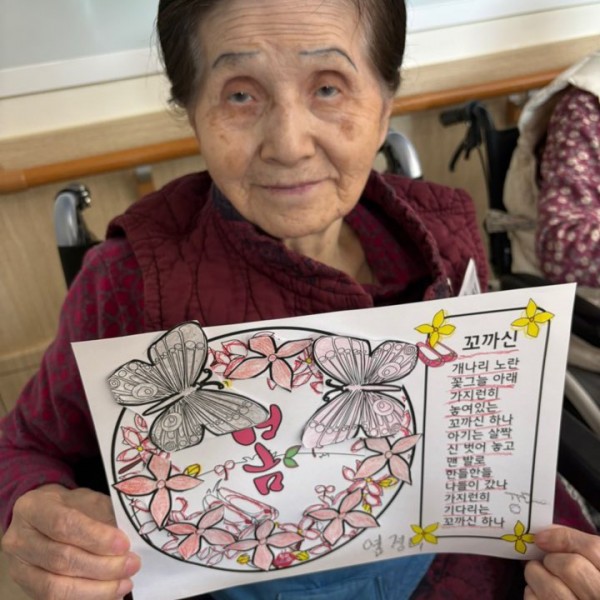 꼬까신
개나리 노란
꽃그늘 아래
가지런히
놓여있는
꼬까신 하나
아기는 살짝
신 벗어 놓고
맨 발로
한들한들
나들이 갔나
가지런히
기다리는
꼬까신 하나